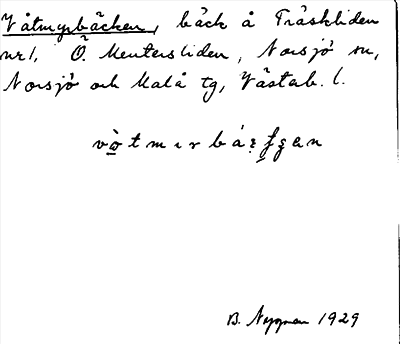 Våtmyrbäcken, bäck å Träskliden
nr1, Ö. Mentersliden, Norsjö sn,
Norsjö och Malå tg, Västerb. l.
B. Nygren 1929